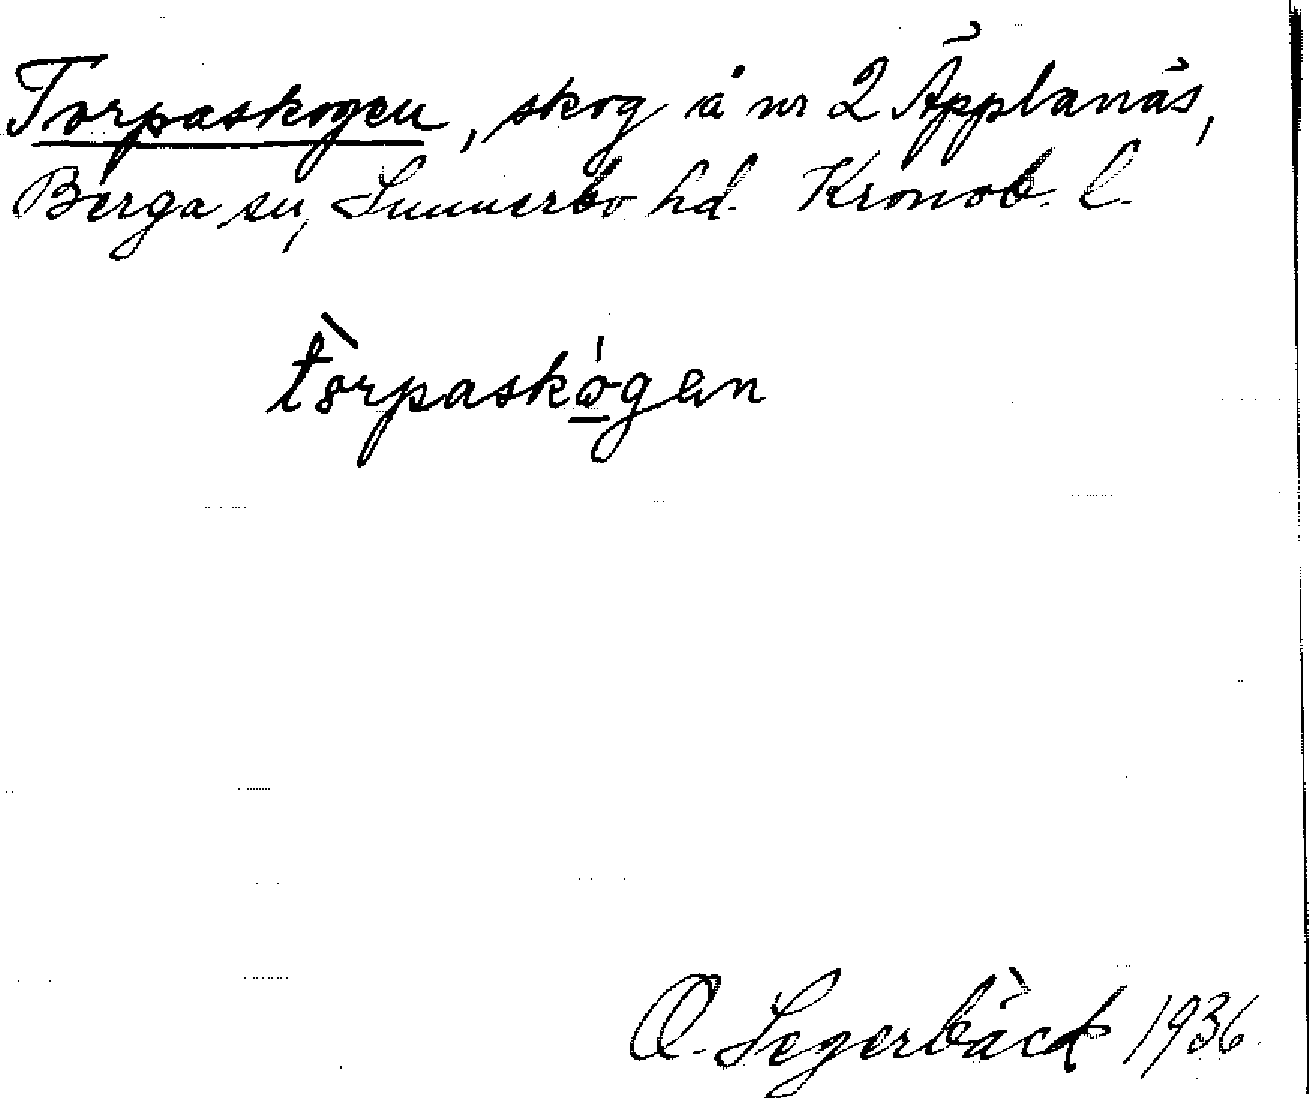 Torpaskogen, skog å nr 2 Äpplanäs,
Berga sn, Sunnerbo hd. Kronob. l.
tòrpaskógen
O. Segerbäck 1936